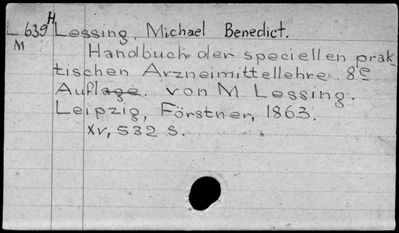 L 639 H Lessing, Michael Benedict.
M
Handbuch der speciellen prak
tischen Arzneimittellehre. 8e
Auflage. von M. Lessing.
Leipzig, Förstner, 1863.
XV, 532 S.